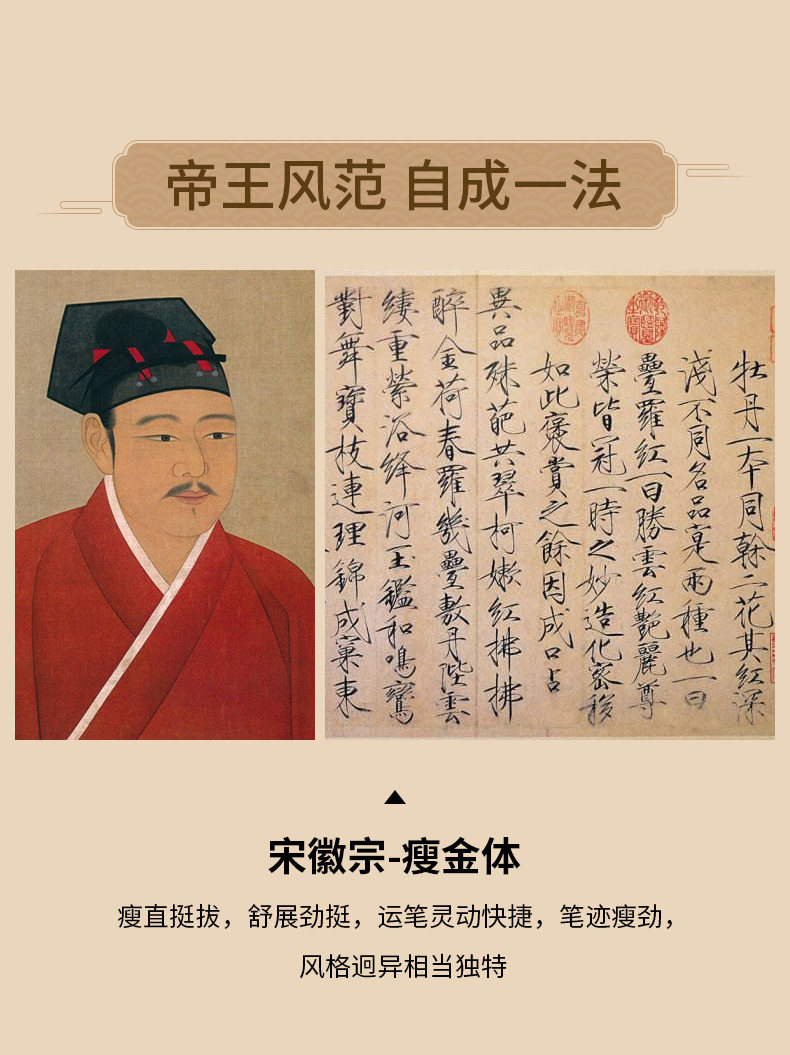 帝王风范 自成一法
牡丹一本同榦二花其紅深
淺不同名品寔兩種也一曰
疊羅紅一曰勝雲紅艷麗尊
榮皆冠一時之妙造化密移
如此褒賞之餘因成口占
異品殊葩共翠柯嫩紅拂拂
醉金荷春羅幾疊敷丹陛雲
縷重縈浴絳河玉鑑和鳴鸞
對舞寶枝連理錦成窠東
宋徽宗-瘦金体
瘦直挺拔，舒展劲挺，运笔灵动快捷，笔迹瘦劲，
风格迥异相当独特